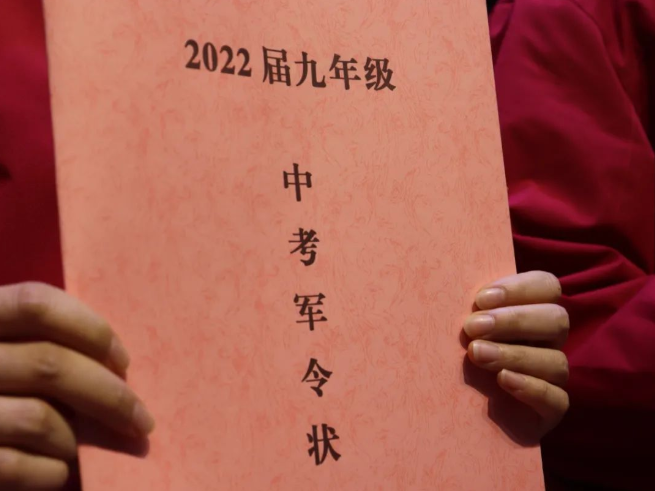 2022届九年级
中考军令状